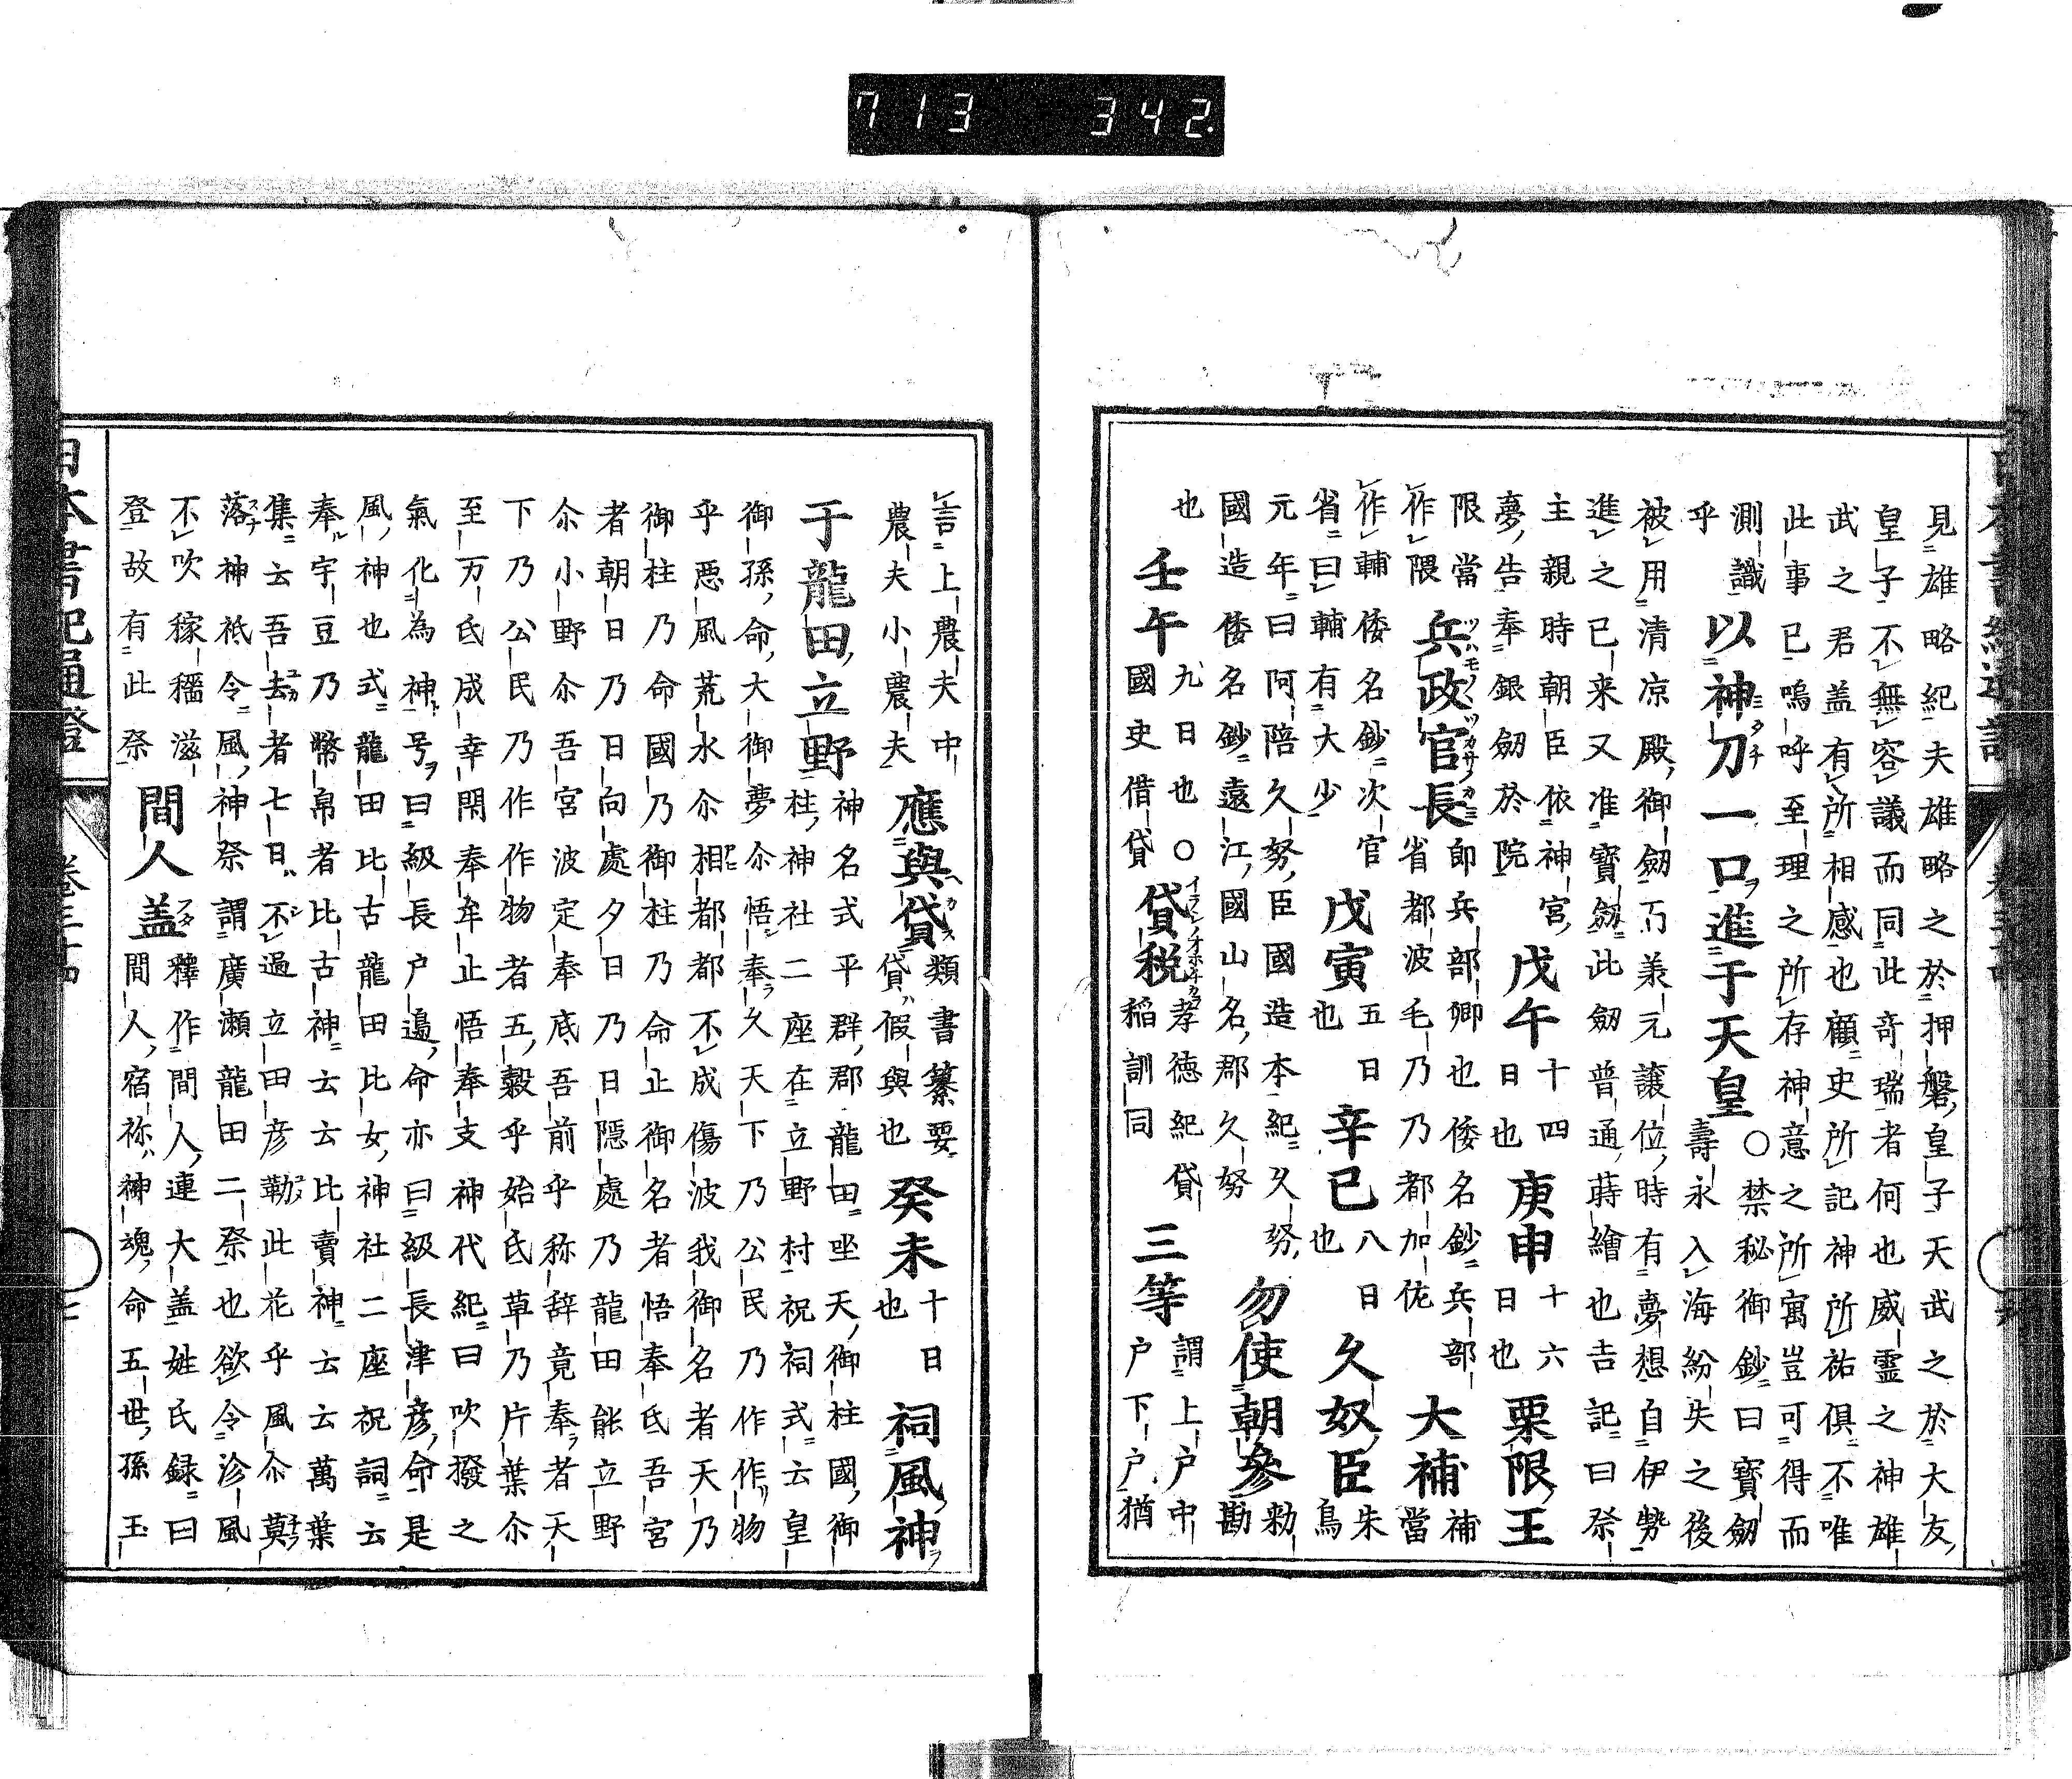 713 342.
見雄略紀夫雄略之於押磐皇子天武之於大友
皇子不無容議而同此奇瑞者何也威霊之神雄
武之君盖有所相感也顧史所記神所祐俱不唯
此事已嗚呼至理之所存神意之所寓豈可得而
測識
乎
以神刀一口進于天皇
○禁秘御鈔曰寶劔
壽永入海紛失之後
被用清凉殿御劔乃羕元譲位時有夢想自伊㔟
進之已来又准寶劔此劔普通蒔繪也吉記曰祭
主親時朝臣依神宮
夢告奉銀劔於院
戊午
十四
日也
庚申
十六
日也
栗限王
限當
作隈
兵政官長
即兵部卿也倭名鈔兵部
省都波毛乃乃都加佐
大補
補
當
作輔倭名鈔次官
省曰輔有大少
戊寅
五日
也
辛巳
八日
也
久奴臣
朱
鳥
元年曰阿陪久努臣國造本紀久努
國造倭名鈔遠江國山名郡久努
勿使朝參
勅
勘
也
壬午
九日也○
國史借貸
貸税
孝徳紀貸
稲訓同
三等
謂上户中
户下户猶
言上農夫中
農夫小農夫
應與貸
類書纂要
貸假與也
癸未
十日
也
祠風神
于龍田立野
神名式平群郡龍田坐天御柱國御
柱神社二座在立野村祝祠式云皇
御孫命大御夢尒悟奉久天下乃公民乃作作物
乎悪風荒水尒相都都不成傷波我御名者天乃
御柱乃命國乃御柱乃命止御名者悟奉氐吾宮
者朝日乃日向處夕日乃日隱處乃龍田能立野
尒小野尒吾宮波定奉底吾前乎称辞竟奉者天
下乃公民乃作作物者五穀乎始氐草乃片葉尒
至万氐成幸閇奉牟止悟奉支神代紀曰吹撥之
氣化為神号曰級長户邉命亦曰級長津彦命是
風神也式龍田比古龍田比女神社二座祝詞云
奉宇豆乃幣帛者比古神云云比賣神云云萬葉
集云吾去者七日不過立田彦勒此花乎風尒莫
落神祇令風神祭謂廣瀬龍田二祭也欲令沴風
不吹稼穡滋
登故有此祭
間人盖
釋作間人連大盖姓氏録曰
間人宿祢神魂命五世孫玉